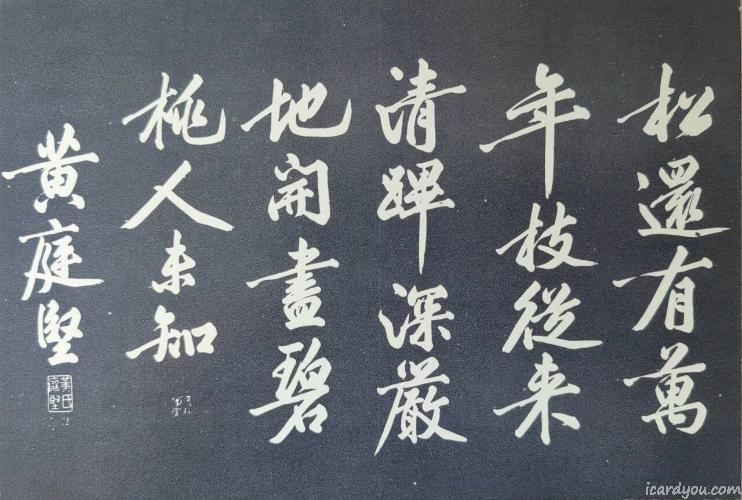 松還有萬
年枝從来
清蹕深嚴
地開盡碧
桃人未知
黄庭堅
黃氏
庭堅
icardyou.com